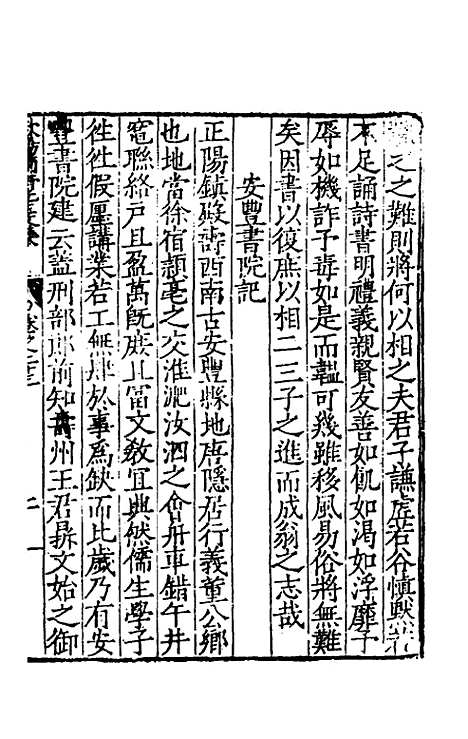 之之難則將何以相之夫君子謙虛若谷慎默若
不足誦詩書明禮義親賢友善如飢如渴如浮靡子
辱如機詐子毒如是而韞可幾雖移風易俗將無難
矣因書以復庶以相二三子之進而成翁之志哉
安豐書院記
正陽鎮壽西南古安豐縣地唐隱居行義董公鄉
也地當徐宿頴亳之交淮淝汝泗之會舟車錯午井
竈聯絡戶且盈萬旣庶且富文敎宜興然儒生學子
徃徃假廛講業若工無肆於事爲缺而比歲乃有安
豐書院建云盖刑部郎前知壽州王君文始之御